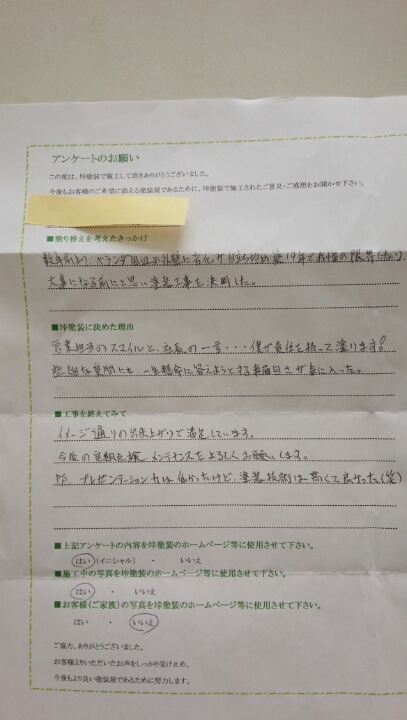 アンケートのお願い
この度は、垰塗装で施工して頂きありがとうございました。
今後もお客様のご希望に添える塗装屋であるために、垰塗装で施工されたご意見・ご感想をお聞かせ下さい。
■塗り替えを考えたきっかけ
数年前より、ベランダ周辺の外壁に が目立ち始め築14年で 限界
大事になる前にと思い塗装工事を決断した。
■垰塗装に決めた理由
営業担当のスマイルと、社長の一言・・・僕が責任を持って塗ります!
些細な質問にも一生懸命に答えようとする真面目さが気に入った。
■工事を終えてみて
イメージ通りの出来上がりで満足しています。
今後の定期点検、メンテナンスをよろしくお願いします。
PS プレゼンテーション力は低かったけど、塗装技術は高くて良かった(笑)
■上記アンケートの内容を垰塗装のホームページ等に使用させて下さい。
はい(イニシャル) ・ いいえ
■施工中の写真を垰塗装のホームページ等に使用させて下さい。
はい ・ いいえ
■お客様(ご家族)の写真を垰塗装のホームページ等に使用させて下さい。
はい ・ いいえ
ご協力、ありがとうございました。
お客様よりいただいたお声をしっかり受け止め、
今後もより良い塗装屋であるために努力します。